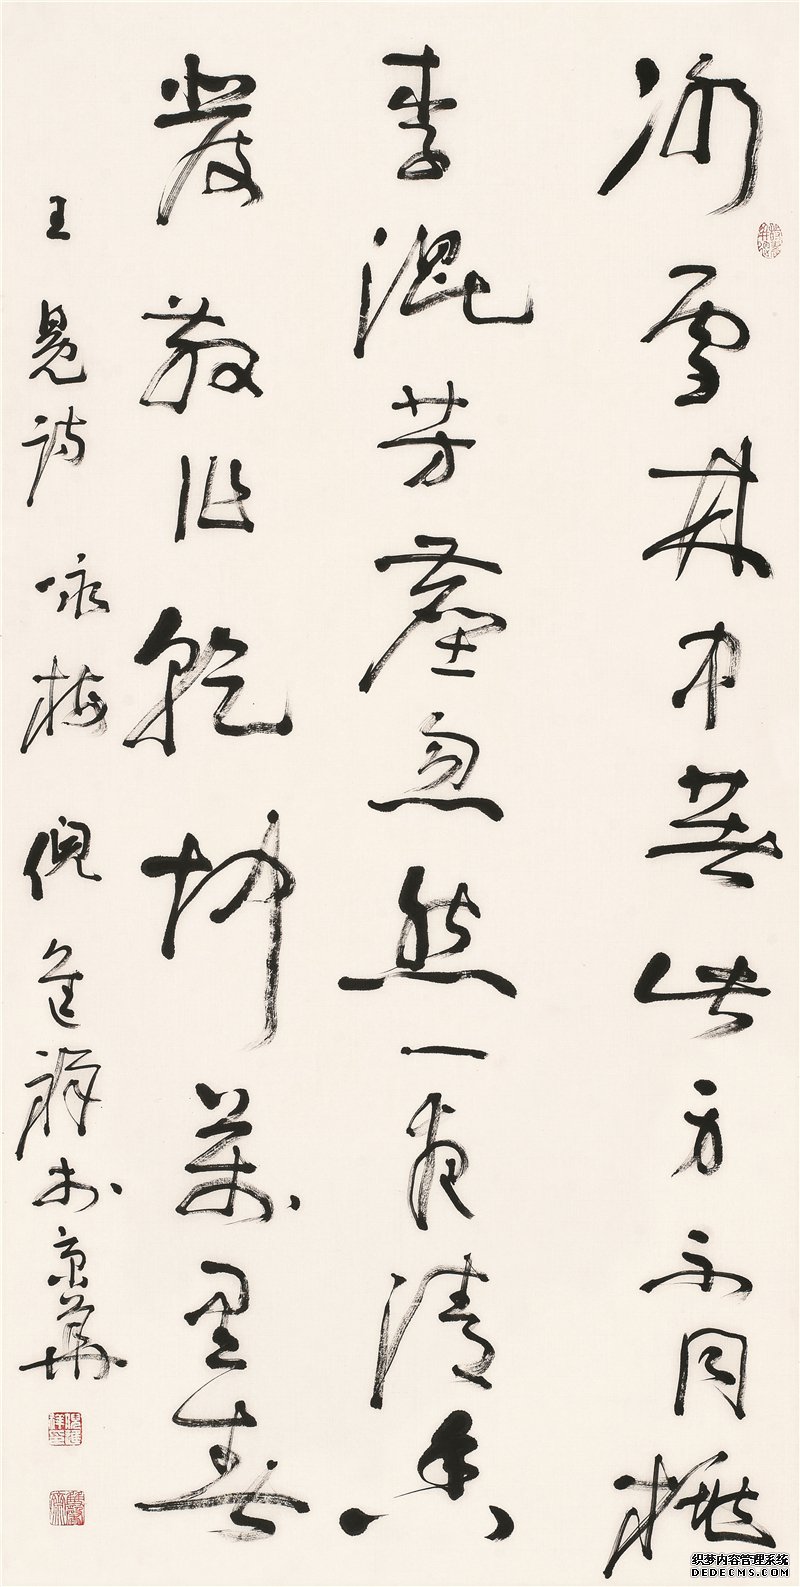 冰雪林中著此身不同桃
李混芳塵忽然一夜清香
發散作乾坤萬里春
王冕詩咏梅倪進祥於京華
织梦内容管理系统
DEDECMS.COM